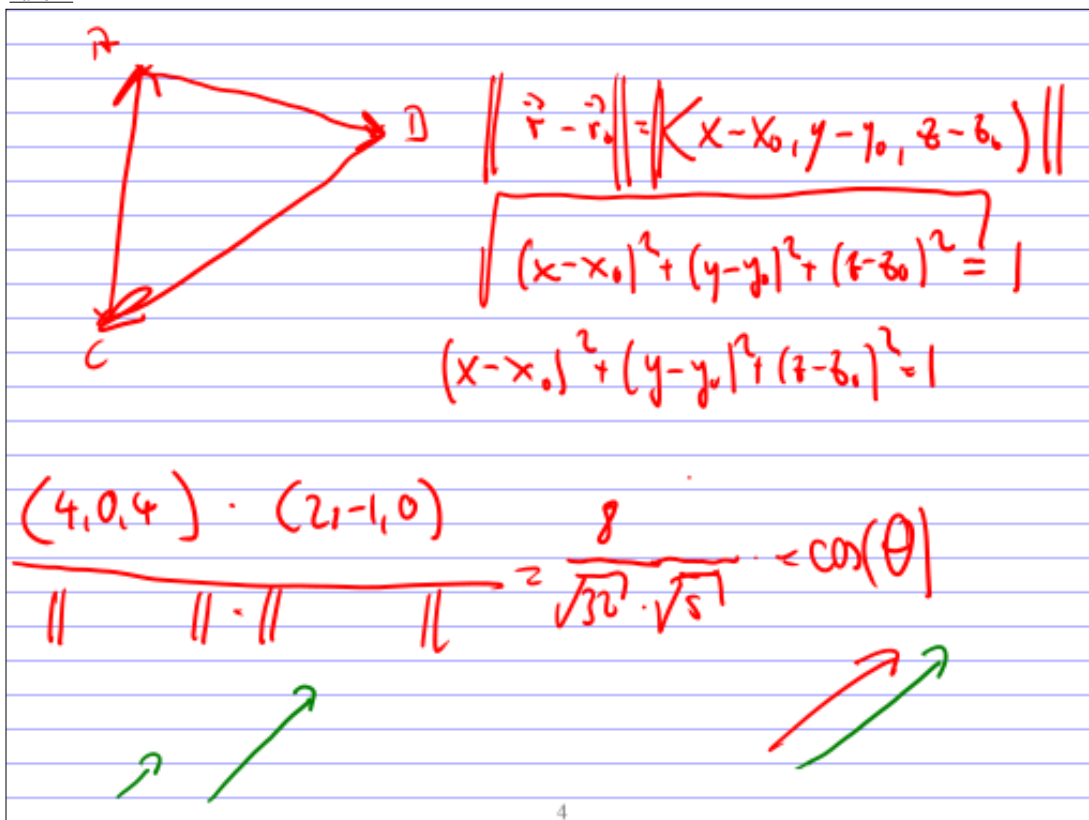 A
D
C
‖ r⃗ - r⃗₀ ‖ = ‖< x-x₀, y-y₀, z-z₀ )‖
√(x-x₀)² + (y-y₀)² + (z-z₀)² = 1
(x-x₀)² + (y-y₀)² + (z-z₀)² = 1
(4,0,4) · (2,-1,0)
‖ ‖ · ‖ ‖
= 8 / √32 · √5 = cos(θ)
4